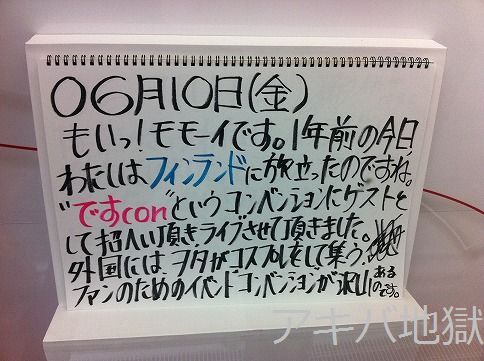 06月10日(金)
もいっ!モモーイです。1年前の今日
わたしはフィンランドに旅立ったのですね。
"ですcon"というコンベンションにゲストと
して招へい頂き、ライブさせて頂きました。
外国には、ヲタがコスプレをして集う、
ファンのためのイベントコンベンションが沢山あるのです。
アキバ地獄